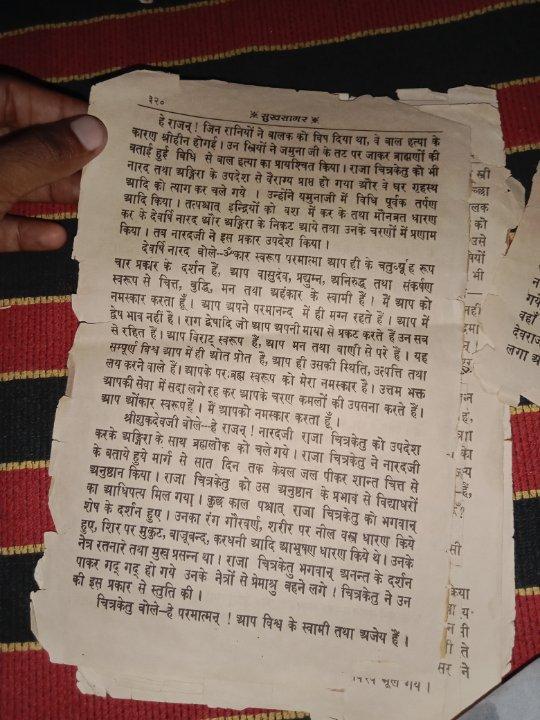 ३२०
* सुखसागर *
हे राजन् ! जिन रानियों ने बालक को विष दिया था, वे बाल हत्या के
कारण श्रीहीन होगई । उन स्त्रियों ने जमुना जी के तट पर जाकर ब्राह्मणों की
बताई हुई विधि से बाल हत्या का प्रायश्चित किया । राजा चित्रकेतु को भी
नारद तथा अङ्गिरा के उपदेश से वैराग्य प्राप्त हो गया और वे घर गृहस्थ
आदि को त्याग कर चले गये । उन्होंने यमुनाजी में विधि पूर्वक तर्पण
आदि किया । तत्पश्चात् इन्द्रियों को वश में कर के तथा मौनव्रत धारण
कर के देवर्षि नारद और अङ्गिरा के निकट आये तथा उनके चरणों में प्रणाम
किया । तब नारदजी ने इस प्रकार उपदेश किया ।
देवर्षि नारद बोले—ॐकार स्वरूप परमात्मा आप ही के चतुःर्व्यूह रूप
चार प्रकार के दर्शन हैं, आप वासुदेव, प्रद्युम्न, अनिरुद्ध तथा संकर्षण
स्वरूप से चित्त, बुद्धि, मन तथा अहंकार के स्वामी हैं । में आप को
नमस्कार करता हूँ । आप अपने परमानन्द में ही मग्न रहते हैं । आप में
द्वेष भाव नहीं है । राग द्वेषादि जो आप अपनी माया से प्रकट करते हैं उन सब
से रहित हैं । आप विराट् स्वरूप हैं, आप मन तथा वाणी से परे हैं । यह
सम्पूर्ण विश्व आप में ही ओत प्रोत है, आप ही उसकी स्थिति, उत्पत्ति तथा
लय करने वाले हैं । आपके परःब्रह्म स्वरूप को मेरा नमस्कार है । उत्तम भक्त
आपकी सेवा में सदा लगे रह कर आपके चरण कमलों की उपसना करते हैं ।
आप ओंकार स्वरूप हैं । में आपको नमस्कार करता हूँ ।
श्रीशुकदेवजी बोले—हे राजन् ! नारदजी राजा चित्रकेतु को उपदेश
करके अङ्गिरा के साथ ब्रह्मलोक को चले गये । राजा चित्रकेतु ने नारदजी
के बताये हुये मार्ग से सात दिन तक केवल जल पीकर शान्त चित्त से
अनुष्ठान किया । राजा चित्रकेतु को उस अनुष्ठान के प्रभाव से विद्याधरों
का आधिपत्य मिल गया । कुछ काल पश्चात् राजा चित्रकेतु को भगवान्
शेष के दर्शन हुए । उनका रंग गौरवर्ण, शरीर पर नील वस्त्र धारण किये
हुए, शिर पर मुकुट, बाजूबन्द, करधनी आदि आभूषण धारण किये थे । उनके
नेत्र रतनारे तथा मुख प्रसन्न था । राजा चित्रकेतु भगवान् अनन्त के दर्शन
पाकर गद् गद् हो गये उनके नेत्रों से प्रेमाश्रु बहने लगे । चित्रकेतु ने उन
की इस प्रकार से स्तुति की ।
चित्रकेतु बोले—हे परमात्मन् ! आप विश्व के स्वामी तथा अजेय हैं ।
भूल गय ।